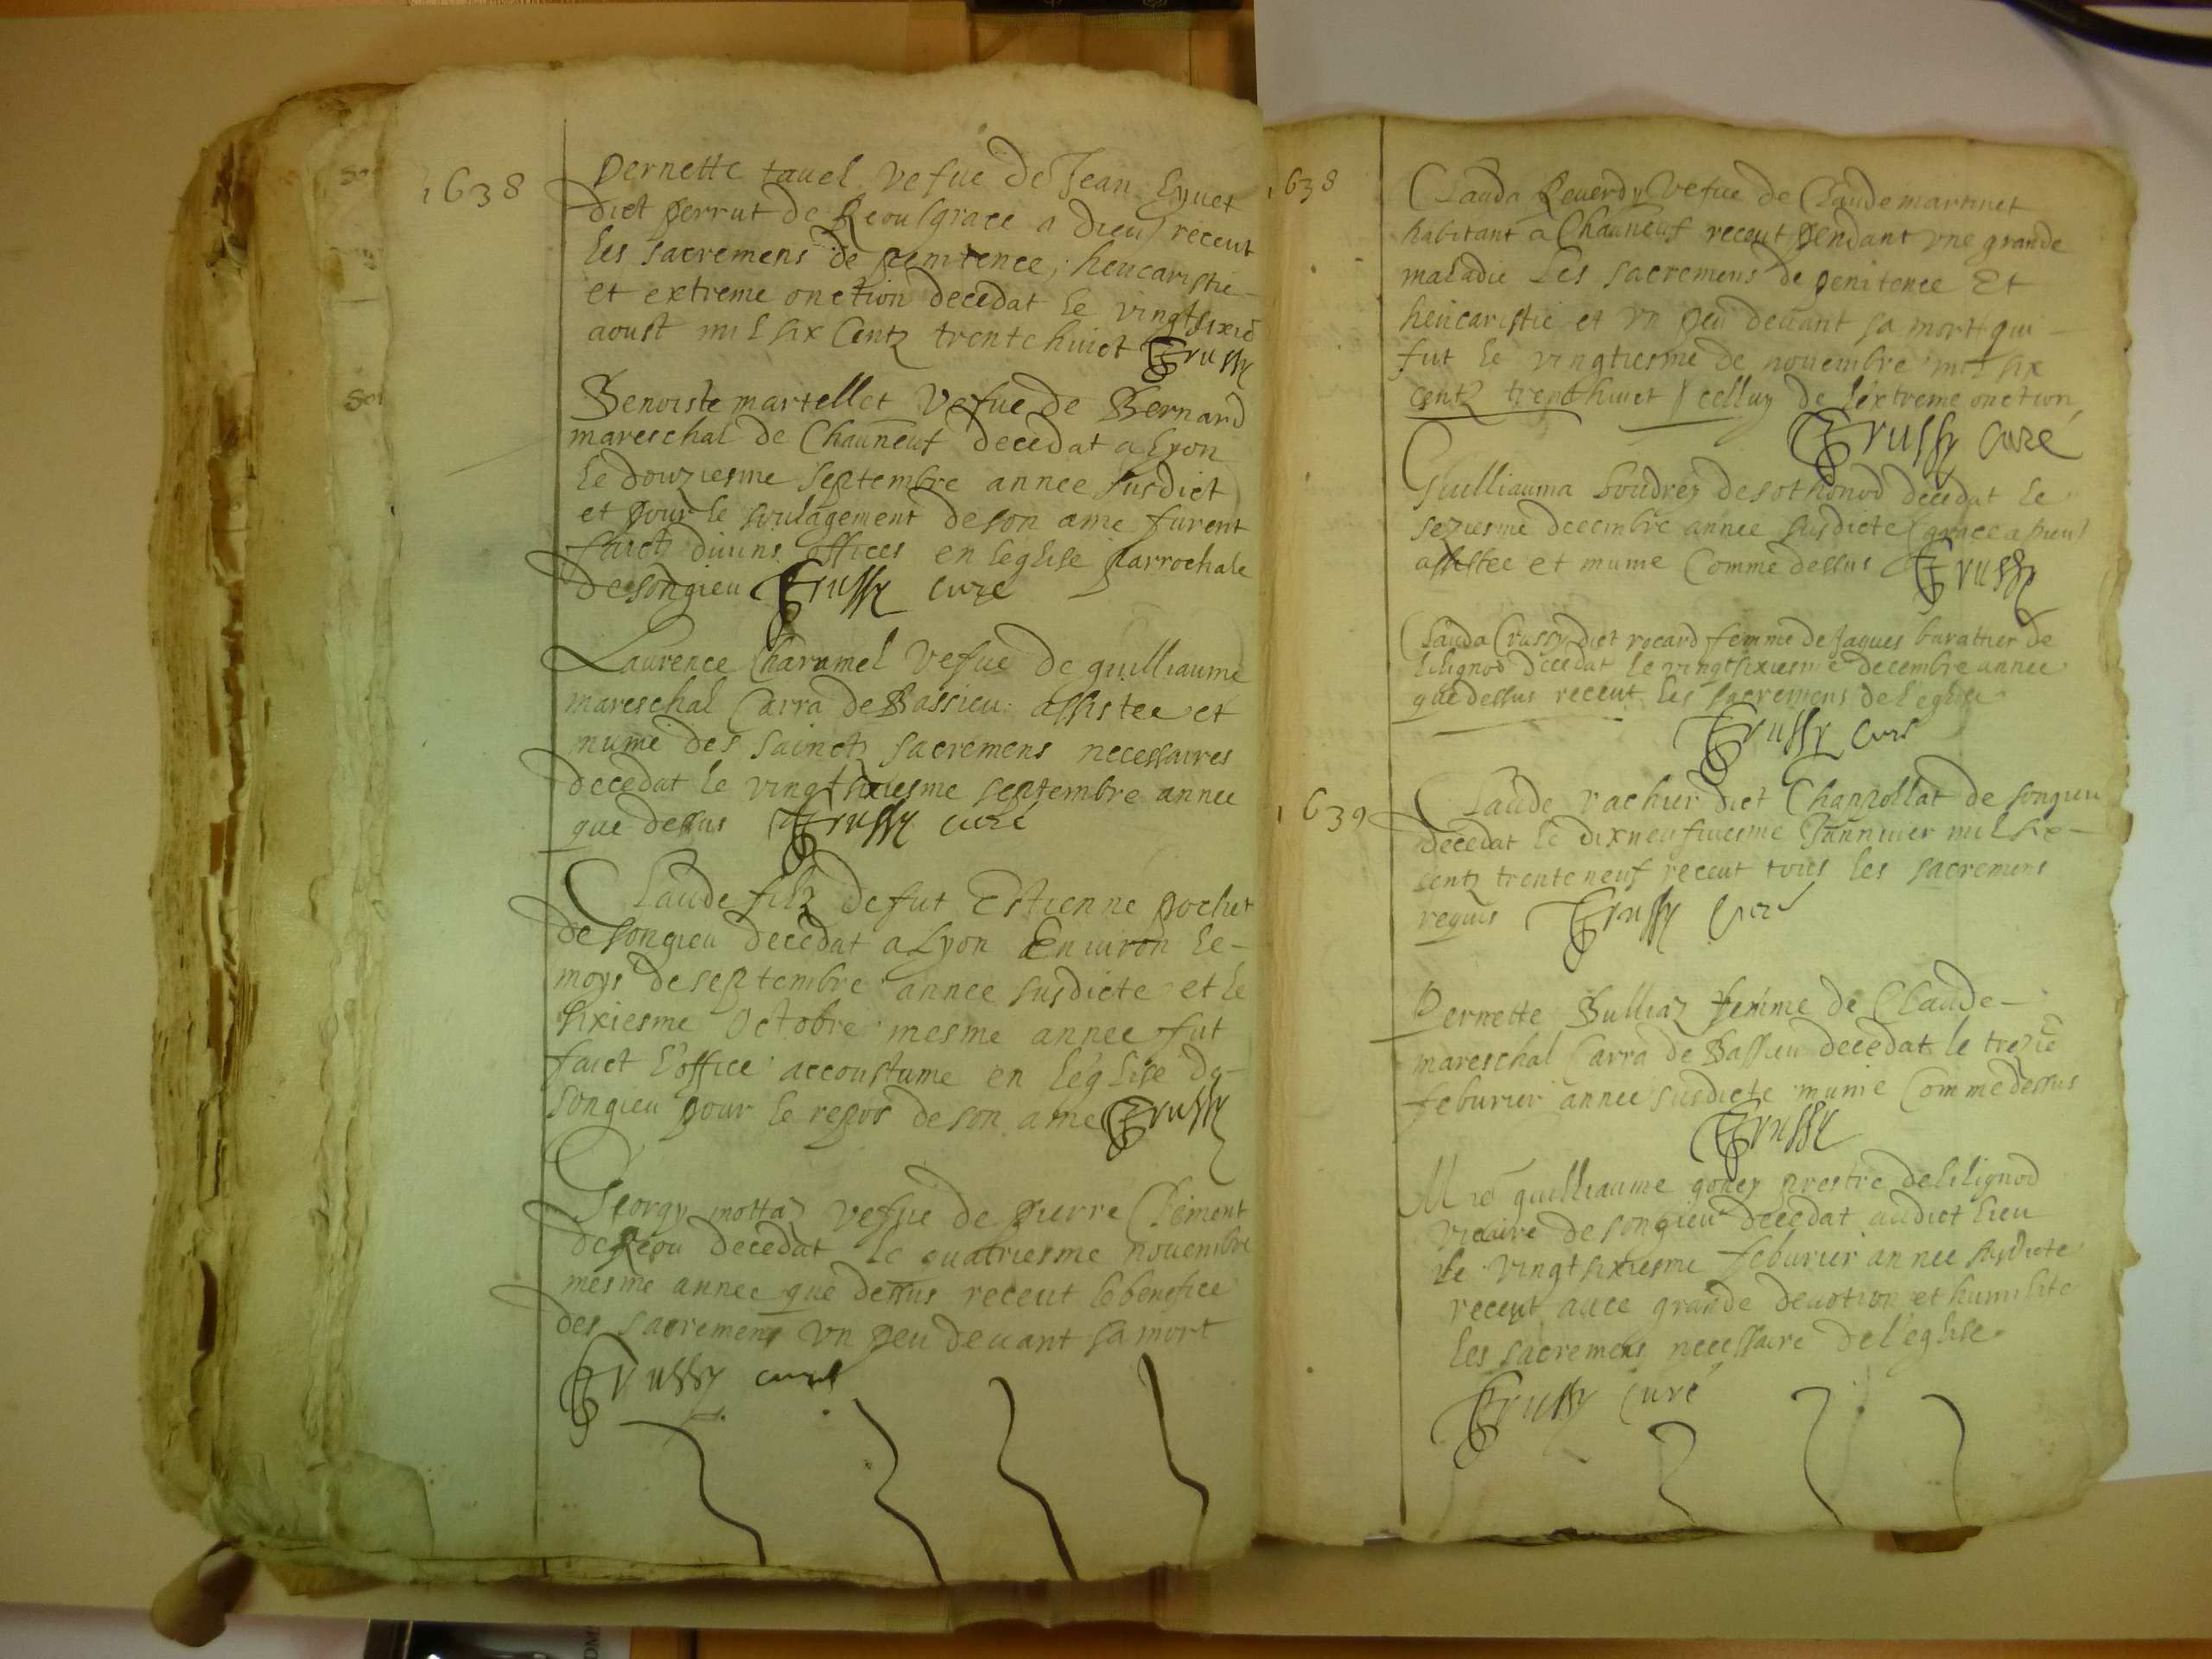 1638
Pernette tavel vefue de Jean Eyuet
dict perrut de Reou (grace a Dieu) receut
les sacremens de penitence, heucaristie
et extreme onction decedat le vingtsixie
aoust mil six Centz trente huict Trussy
Benoiste martellet vefue de Bernard
mareschal de Chauneuf decedat a Lyon
le douziesme septembre annee susdict
et pour le soulagement de son ame furent
faictz diuins offices en leglise parrochale
de songieu Trussy curé
Laurence Charamel vefue de guilliaume
mareschal Carra de Bassieu assistee et
munie des sainctz sacremens necessaires
decedat le vingt sixiesme septembre annee
que dessus Trussy curé
Claude filz de fut Estienne pochet
de songieu decedat a Lyon Enuiron le
moys de septembre annee susdicte et le
sixiesme Octobre mesme annee fut
faict l'office accoustume en l'eglise de
songieu pour le repos de son ame Trussy
Georgy mottaz vefue de pierre Clement
de Reou decedat le quatriesme nouembre
mesme annee que dessus receut le benefice
des sacremens vn peu deuant sa mort
Trussy curé
1638
Clauda Reuerdy vefue de Claude martinet
habitant a Chauneuf receut pendant vne grande
maladie Les sacremens de penitence Et
heucaristie et vn peu deuant sa mort qui
fut le vingtiesme de nouembre mil six
centz trente huict celluy de l'extreme onction
Trussy curé
Guilliauma boudrez de sothonod decedat le
seziesme decembre annee susdicte (grace a Dieu)
assistee et munie Comme dessus Trussy
Clauda Crussy dict rocard femme de Jaques barattier de
lilignod decedat le vingtsixiesme decembre annee
que dessus receut les sacremens de l'eglise
Trussy curé
1639
Claude vachier dict Chappollat de songieu
decedat le dixneufuiesme Jannuier mil six
centz trente neuf receut tous les sacremens
requis Trussy Curé
Pernette Bulliaz femme de Claude
mareschal Carra de Bassieu decedat le trezie
feburier annee susdicte munie Comme dessus
Trussy
Mre guilliaume goney prestre de lilignod
vicaire de songieu decedat audict lieu
le vingt sixiesme feburier annee susdicte
receut auec grande deuotion et humilite
les sacremens necessaire de l'eglise
Trussy Curé